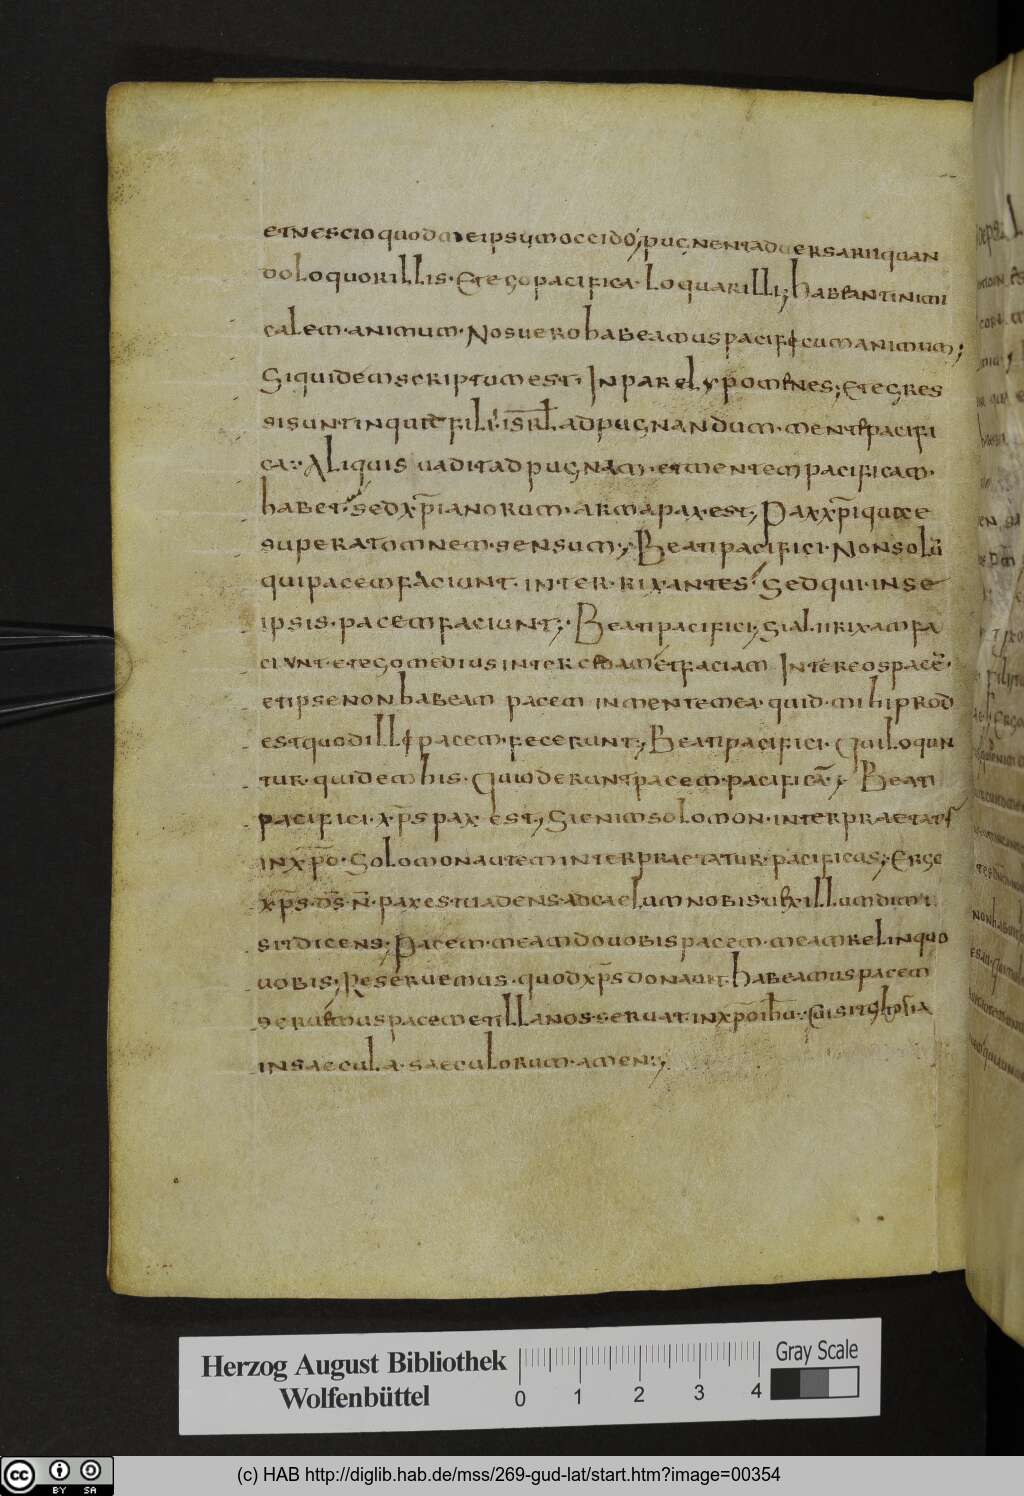 et nescio quod me ipsum occido; pugnent adversarii quan
do loquor illis · et ego pacifica · loquar illis; habeant inimi
calem · animum · Nos uero habeamus pacificum animum;
Siquidem scriptum est · In paralypomenes; et egres
si sunt inquit filii isrl̄ ad pugnandum · mente pacifi
ca · Aliquis uadit ad pugnam · et mentem pacificam ·
habet · sed xp̄ianorum · arma pax · est; Pax xp̄i quae
superat omnem · sensum; Beati pacifici · Non solū
qui pacem faciunt · inter · rixantes · Sed qui · in se
ipsis · pacem faciunt; Beati pacifici; Si alii rixam fa
ciunt et ego medius intercedam et faciam inter eos pacē ·
et ipse non habeam pacem in mente mea · quid · mihi prod
est quod illi pacem · fecerunt; Beati pacifici · Qui loqun
tur · quidem his · Qui oderunt pacem · pacificā; Beati
pacifici · xp̄s pax est; Si enim solomon · interpraetat
in xp̄o · Solomon autem interpraetatur · pacificus; Ergo
xp̄s · dn̄s · n̄ · pax est uadens · ad caelum nobis
sit dicens; Pacem · meam do uobis pacem · meam relinquo
uobis; Reseruemus · quod xp̄s donauit · habeamus pacem
seruemus pacem et illa nos · seruat · in xp̄o ih̄u · Cui sit gloria
in saecula · saeculorum · amen;
Herzog August Bibliothek
Wolfenbüttel
0 1 2 3 4
Gray Scale
cc BY SA
(c) HAB http://diglib.hab.de/mss/269-gud-lat/start.htm?image=00354